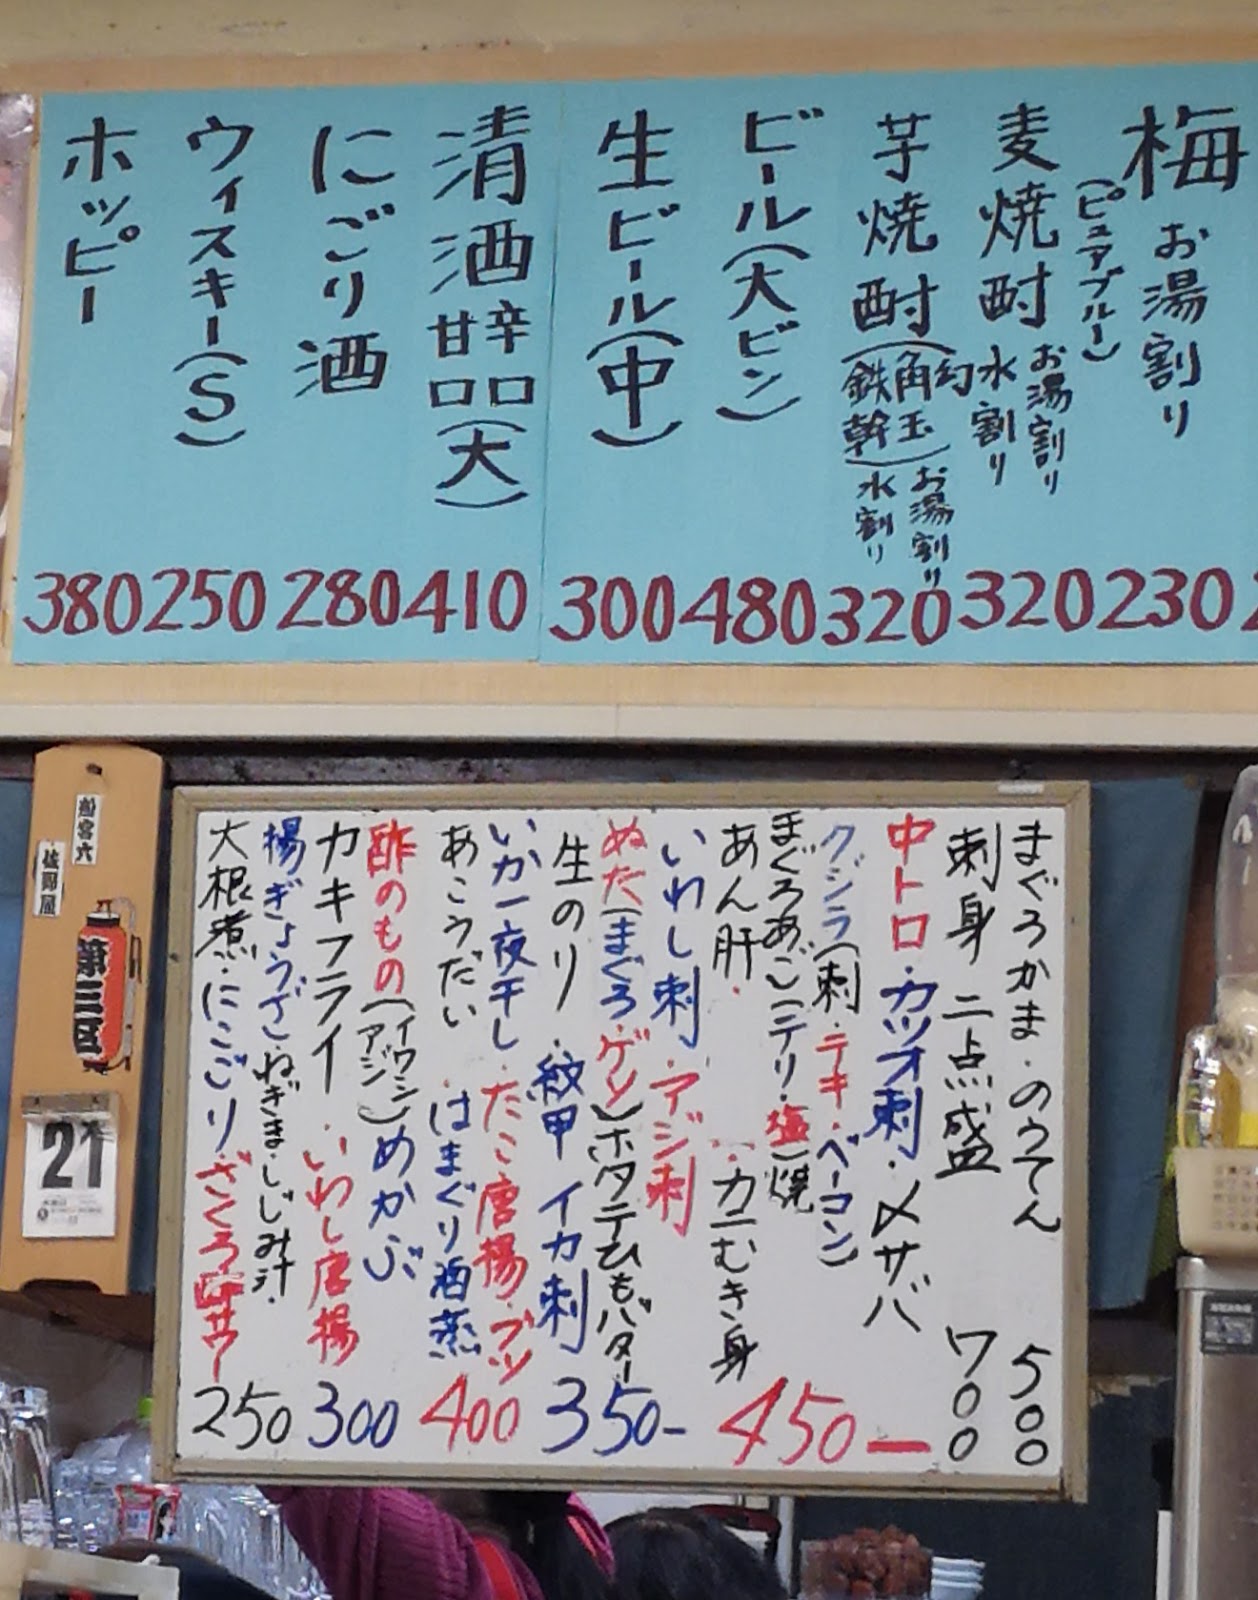 梅お湯割り
230
麦焼酎(ピュアブルー)
お湯割り
水割り
320
芋焼酎(角玉 幻
鉄幹)
お湯割り
水割り
320
ビール(大ビン)
480
生ビール(中)
300
清酒 辛口 甘口(大)
410
にごり酒
280
ウィスキー(S)
250
ホッピー
380
まぐろかま・のうてん 500
刺身二点盛 700
中トロ・カツオ刺・〆サバ
クジラ(刺・テキ・ベーコン)
まぐろあご(テリ・塩)焼
あん肝・カニむき身
450
いわし刺・アジ刺
ぬた(まぐろ・ゲソ)ホタテひもバター
生のり・紋甲イカ刺
350
いか一夜干し・たこ唐揚・ブツ
あこうだい・はまぐり酒蒸
400
酢のもの(イワシ アジ)めかぶ
カキフライ・いわし唐揚
300
揚ぎょうざ・ねぎま・しじみ汁・
大根煮・にこごり
250
第三区
21